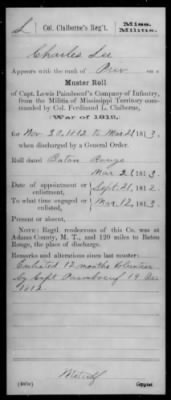 L
Col. Claiborne's Reg't.
Miss. Militia.
Charles Lee
Appears with the rank of Priv on a
Muster Roll
of Capt. Lewis Painboeuf's Company of Infantry,
from the Militia of Mississippi Territory
commanded by Col. Ferdinand L. Claiborne,
War of 1812,
for Nov 30, 1812 to Mar 2, 1813,
when discharged by General Order.
Roll dated Baton Rouge
Mar 2, 1813.
Date of appointment or enlistment, Sept. 21, 1812.
To what time engaged or enlisted, Mar 12, 1813.
Present or absent,
NOTE: Regtl rendezvous of this Co. was at
Adams County, M. T., and 120 miles to Baton
Rouge, the place of discharge.
Remarks and alterations since last muster:
Enlisted 12 months volunteer
by Capt Painboeuf 19
1812.
Metcalf
Copyist.